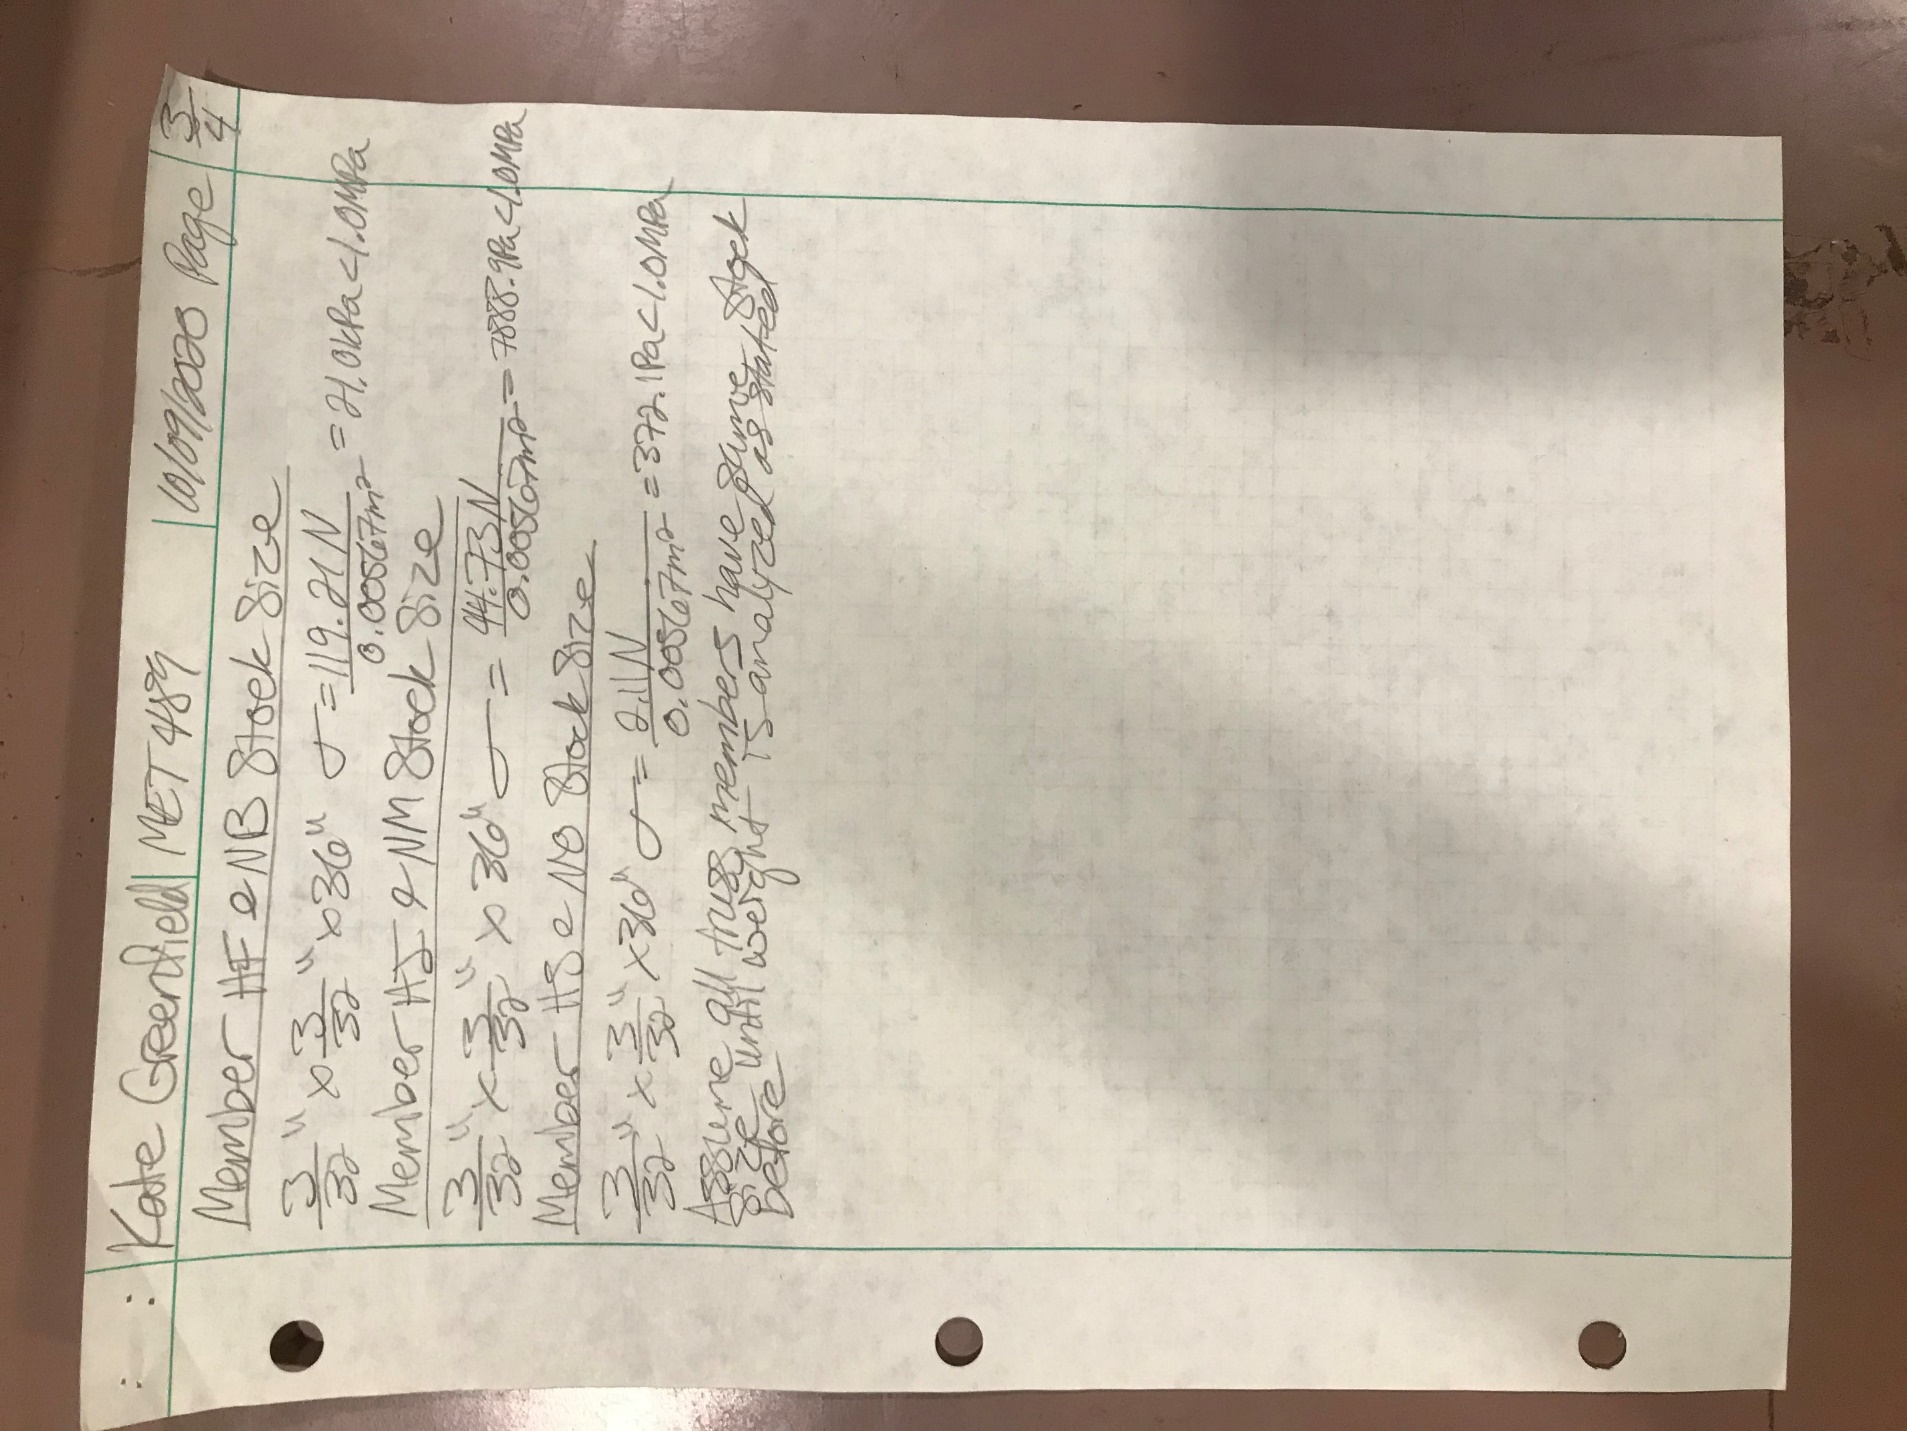 Kate Greenfield | MET 489 | 10/09/2020 Page 3/4
Member HF & NB Stock Size
3/32" x 3/32" x 36" σ = 119.21N / 0.00567m² = 21.0kPa < 1.0MPa
Member HJ & NM Stock Size
3/32" x 3/32" x 36" σ = 44.73N / 0.00567m² = 7888.9Pa < 1.0MPa
Member HS & NO Stock Size
3/32" x 3/32" x 36" σ = 2.11N / 0.00567m² = 372.1Pa < 1.0MPa
Assume all truss members have same stock
size until weight is analyzed as stated
before